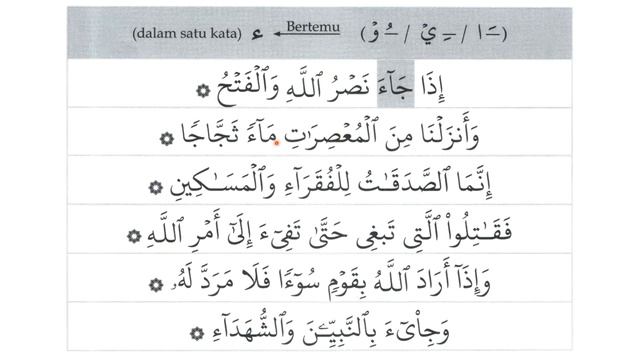 (ـَـ ا / ـِـ يۡ / ـُـ وۡ) Bertemu ء (dalam satu kata)
إِذَا جَآءَ نَصۡرُ ٱللَّهِ وَٱلۡفَتۡحُ ۞
وَأَنزَلۡنَا مِنَ ٱلۡمُعۡصِرَٰتِ مَآءٗ ثَجَّاجٗا ۞
إِنَّمَا ٱلصَّدَقَٰتُ لِلۡفُقَرَآءِ وَٱلۡمَسَٰكِينِ ۞
فَقَٰتِلُواْ ٱلَّتِي تَبۡغِي حَتَّىٰ تَفِيٓءَ إِلَىٰٓ أَمۡرِ ٱللَّهِ ۞
وَإِذَآ أَرَادَ ٱللَّهُ بِقَوۡمٖ سُوٓءٗا فَلَا مَرَدَّ لَهُۥ ۞
وَجِاْيٓءَ بِٱلنَّبِيِّـۧنَ وَٱلشُّهَدَآءِ ۞